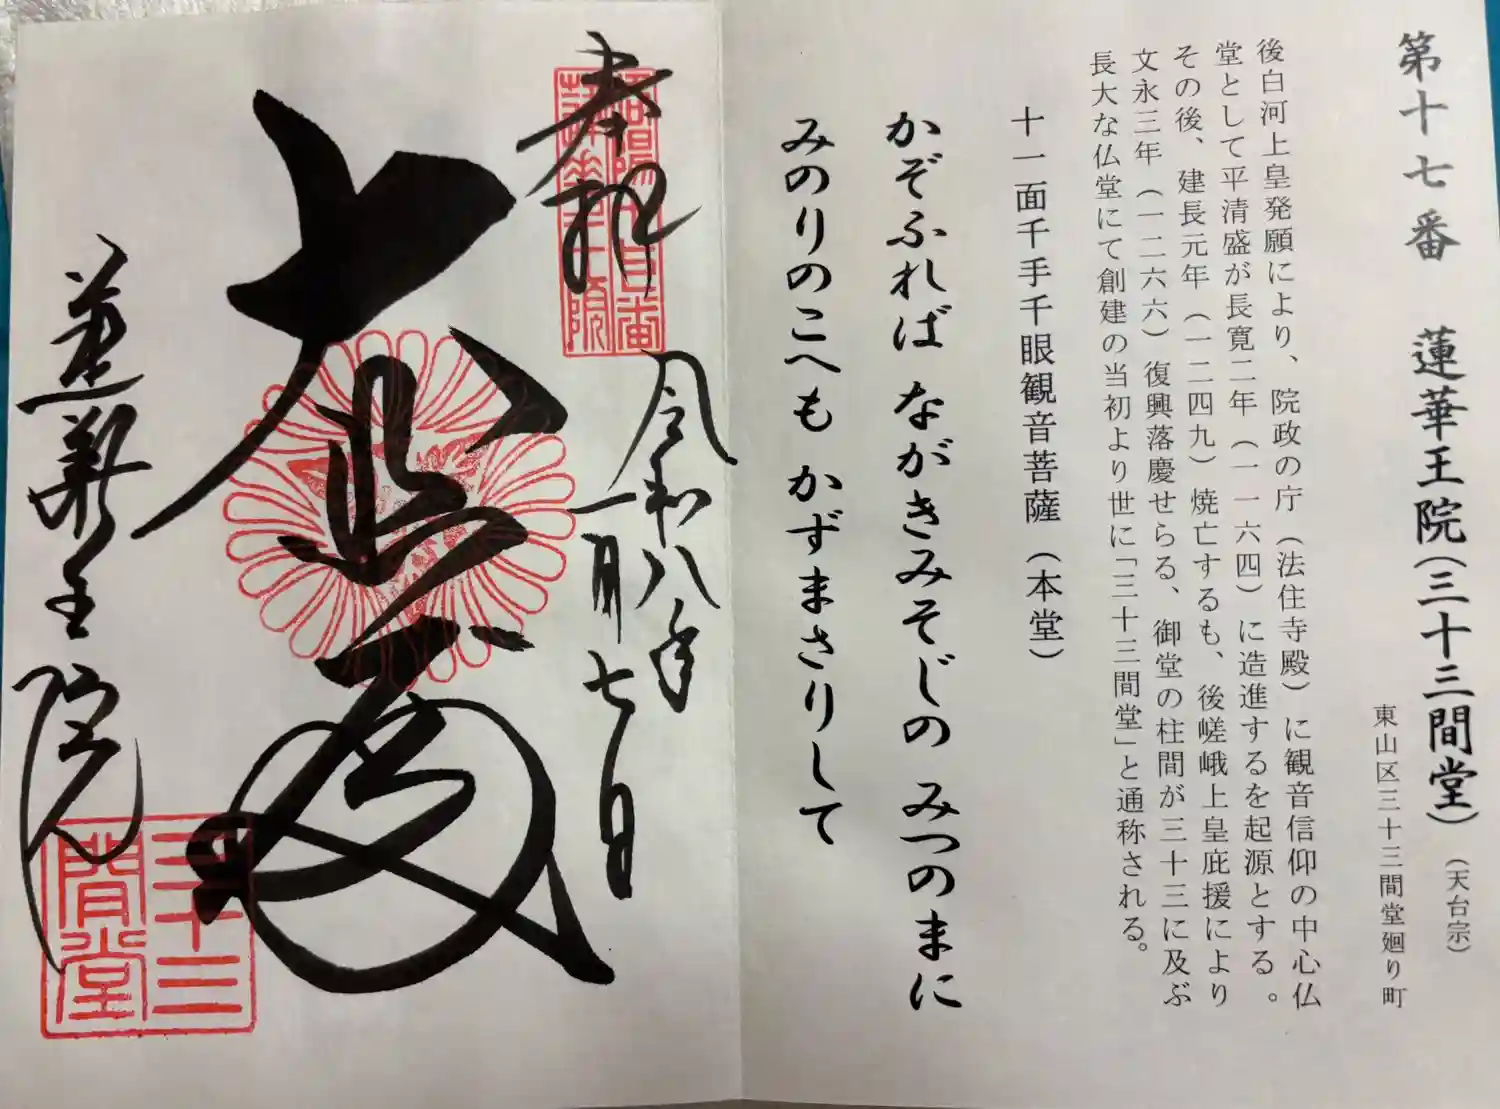 第十七番 蓮華王院(三十三間堂)(天台宗)
東山区三十三間堂廻り町
後白河上皇発願により、院政の庁(法住寺殿)に観音信仰の中心仏
堂として平清盛が長寛二年(一一六四)に造進するを起源とする。
その後、建長元年(一二四九)焼亡するも、後嵯峨上皇庇援により
文永三年(一二六六)復興落慶せらる、御堂の柱間が三十三に及ぶ
長大な仏堂にて創建の当初より世に「三十三間堂」と通称される。
十一面千手千眼観音菩薩(本堂)
かぞふれば ながきみそじの みつのまに
みのりのこへも かずまさりして
奉拝
洛陽十七番
蓮華王院
令和八年
一月七日
大悲殿
蓮華王院
三十三
間堂